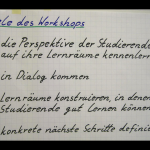 le des Workshops
die Perspektive der Studierende
auf ihre Lernräume kennenlern
in Dialog kommen
Lernräume konstruieren, in denen
Studierende gut Lernen können
konkrete nächste Schritte definie